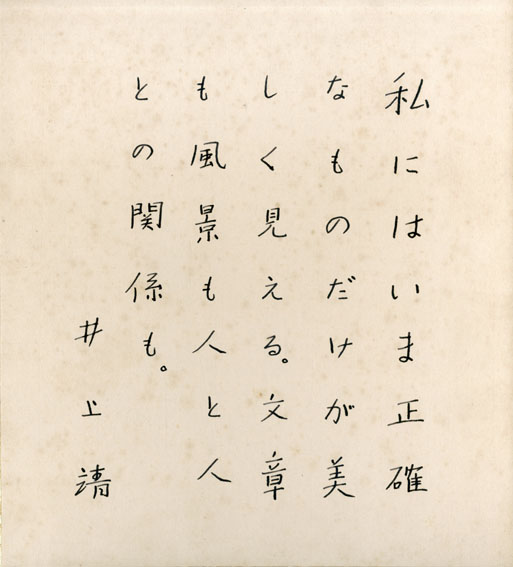 私にはいま正確
なものだけが美
しく見える。文章
も風景も人と人
との関係も。
井上靖